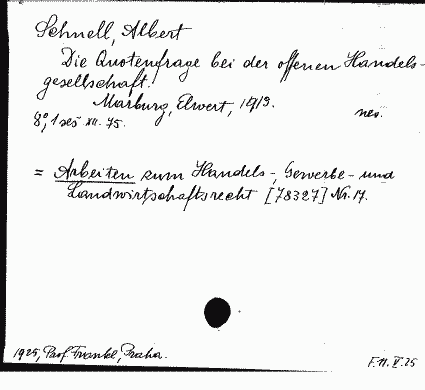 Schnell, Albert
Die Quotenfrage bei der offenen Handels-
gesellschaft.
Marburg, Elwert, 1913.
8°, 1 seš XII. 75.
nes.
= Arbeiten zum Handels-, Gewerbe- und
Landwirtschaftsrecht [78327] Nr. 17.
1925, Prof. Frankl, Praha.
F. 11. V. 25